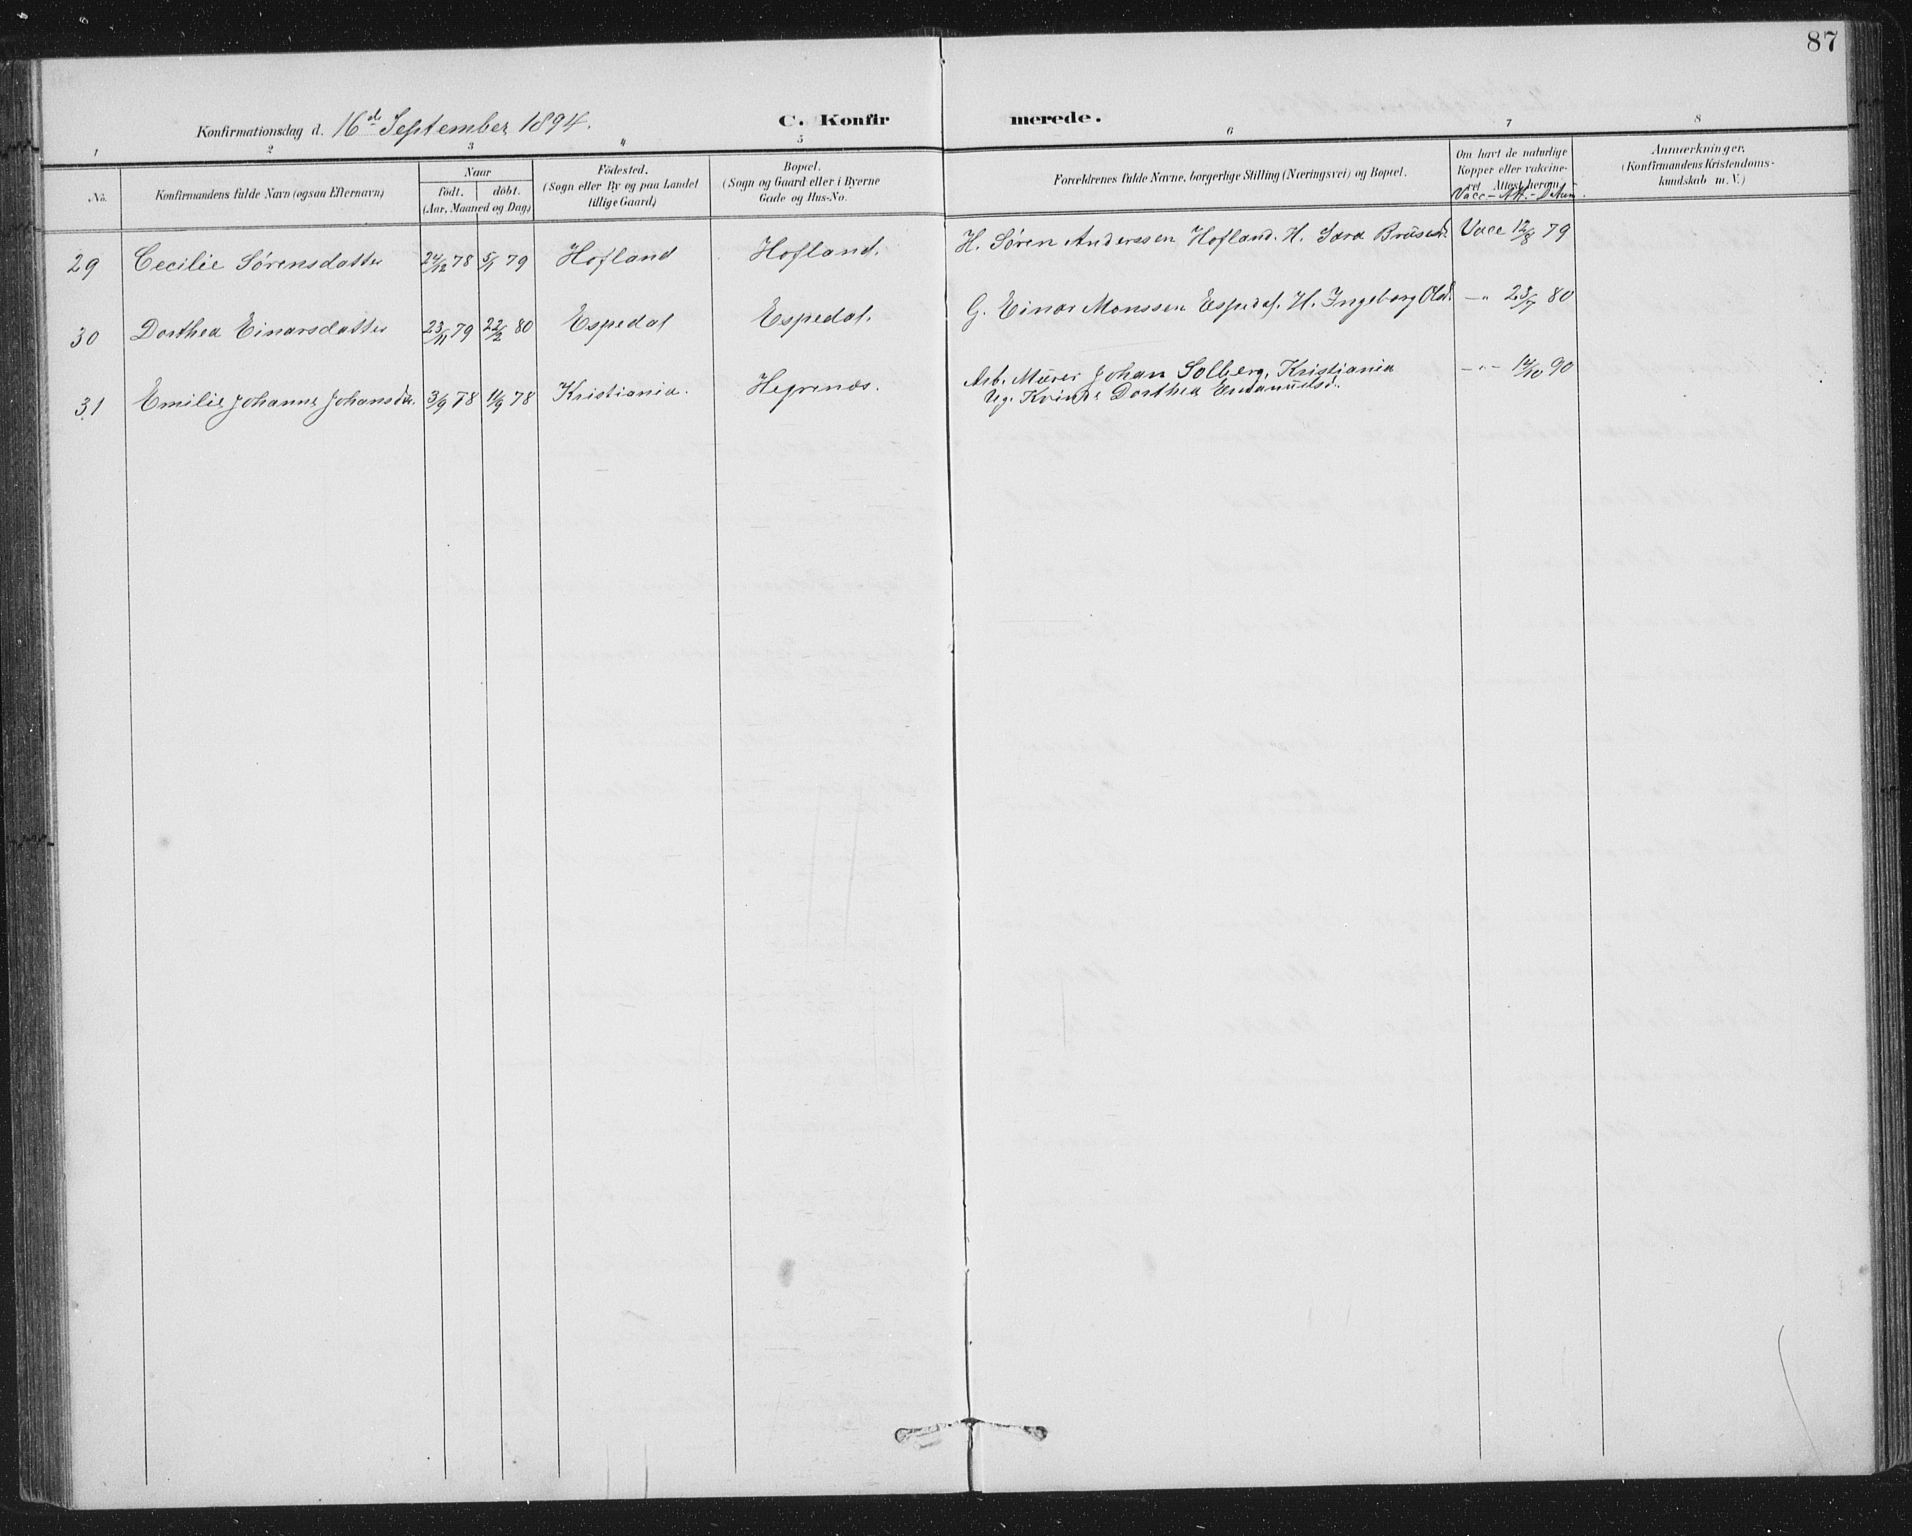 87
Konfirmationsdag d. 16d September 1894.
C. Konfirmerede.
1 2 3 4 5 6 7 8
No.
Konfirmandens fulde Navn (ogsaa Efternavn)
Naar
födt. döbt.
(Aar, Maaned og Dag)
Födested.
(Sogn eller By og paa Landet
tillige Gaard)
Bopæl.
(Sogn og Gaard eller i Byerne
Gade og Hus-No.
Forældrenes fulde Navne, borgerlige Stilling (Næringsvei) og Bopæl.
Om havt de naturlige
Kopper eller vakcine-
ret Attest herom
Vacc - Att. - Datum.
Anmærkninger.
(Konfirmandens Kristendoms-
kundskab m. V.)
29 Cecilie Sørensdatter 24/12 78 5/1 79 Hofland Hofland. H. Søren Anderssen Hofland. H. Sara Vacc 12/8 79
30 Dorthea Einarsdatter 23/11 79 22/2 80 Espedal Espedal. G. Einar Monssen Espedal. H. Ingeborg Olsd. -"- 23/7 80
31 Emilie Johanne Johansdtr. 3/9 78 /9 78 Kristiania. Hegrenæs. Arb. Murer Johan Solberg, Kristiania -"- /10 90
Ug. Kvinde Dorthea Emanuelsd.